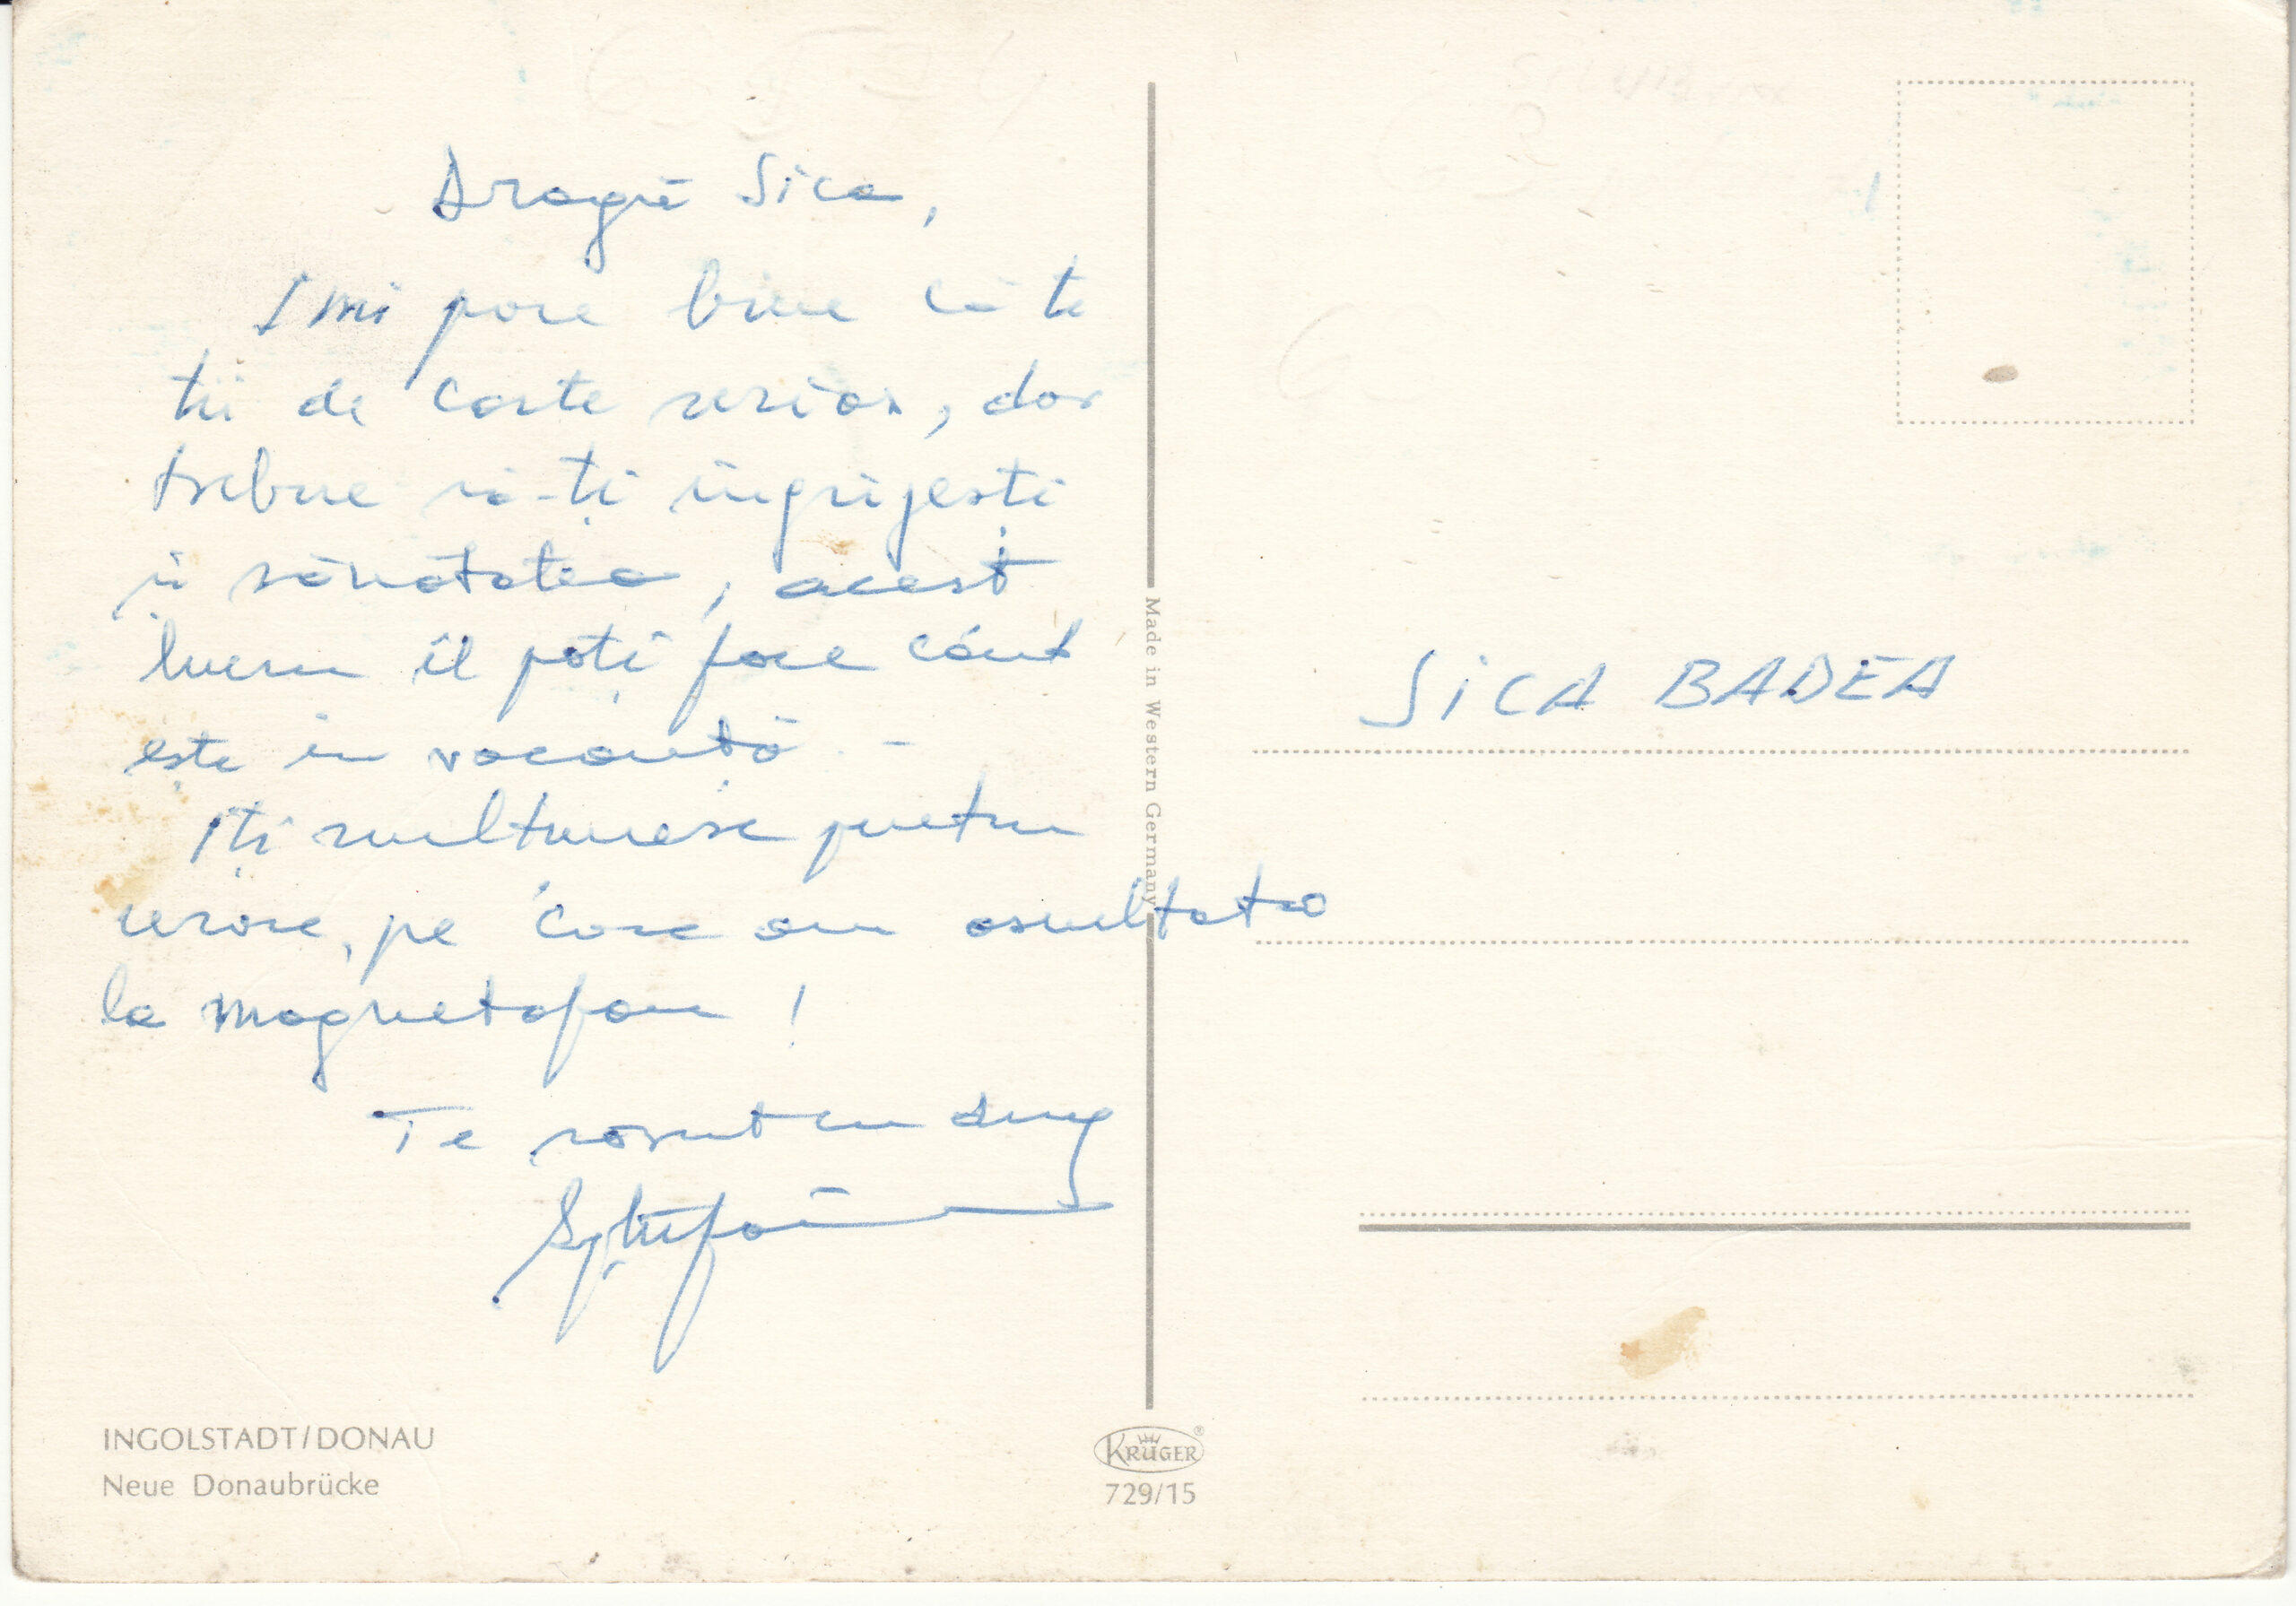 Dragă Sica,
Imi pare bine că te
tii de carte serios, dar
trebue să-ți îngrijești
și sănătatea, acest
lucru îl poți face când
ește in vacanță. -
Iți multumesc pentru
urare, pe care am ascultat-o
la magnetofon!
Te sărut cu drag
Ștefan
SICA BADEA
Made in Western Germany
INGOLSTADT/DONAU
Neue Donaubrücke
KRÜGER®
729/15